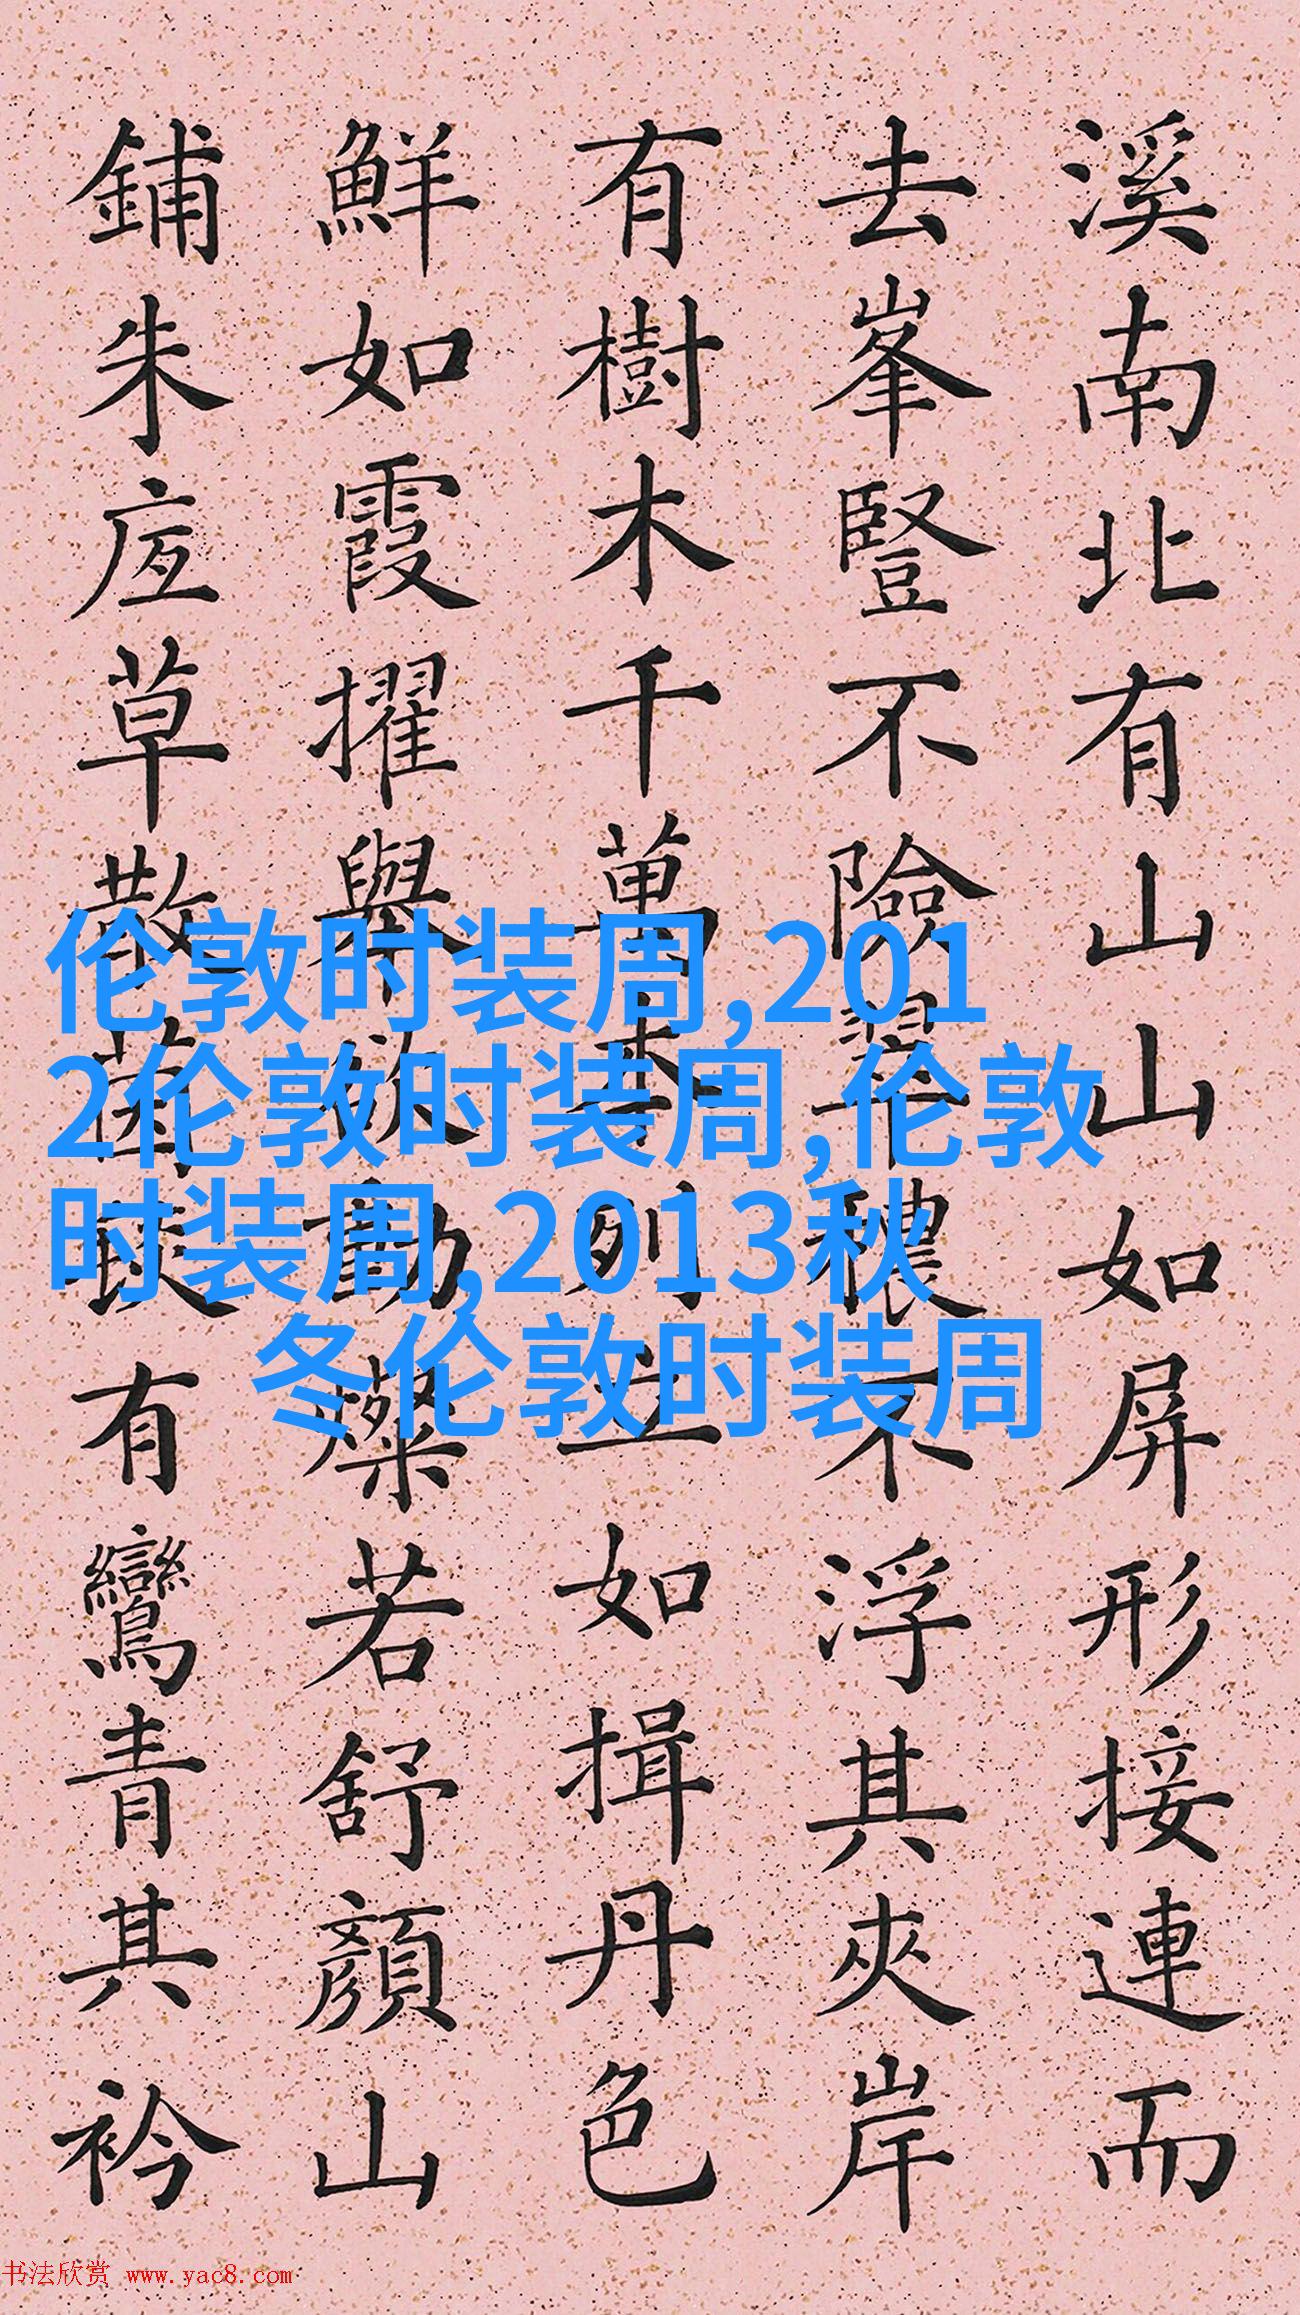 溪南北有山山如屏形接連而
去峯豎不險翠穠不浮其夾岸
有樹木千萬本列立如揖丹色
鮮如霞擢舉欲動燦若舒顏山
鋪朱草散茵有鸞青其衿
伦敦时装周,201
2伦敦时装周,伦敦
时装周,2013秋
冬伦敦时装周
书法欣赏 www.yac8.com